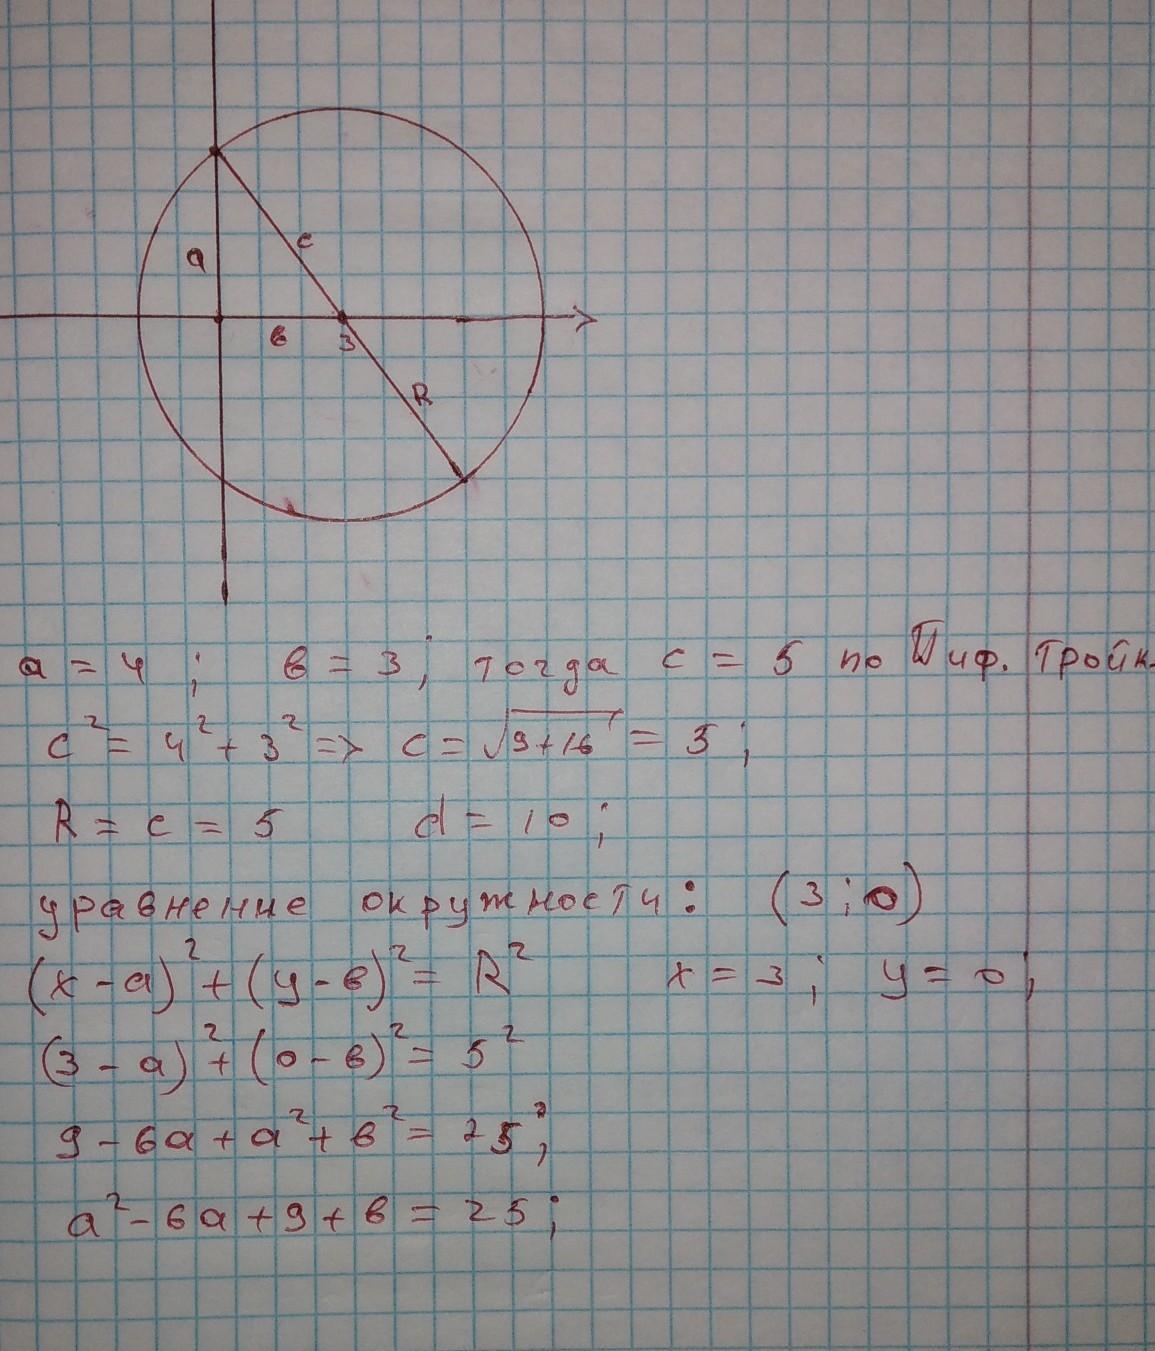 a
c
в 3
R
a = 4 ; в = 3 ; тогда c = 5 по Пиф. Тройк.
c² = 4² + 3² => c = √9+16 = 5 ;
R = c = 5 d = 10 ;
уравнение окружности : (3 ; 0)
(x - a)² + (y - в)² = R² x = 3 ; y = 0 ;
(3 - a)² + (0 - в)² = 5²
9 - 6a + a² + в² = 25 ;
a² - 6a + 9 + в = 25 ;